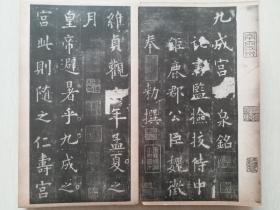 九成宮 泉銘
祕書監檢挍侍中
鉅鹿郡公臣魏徵
奉 勅撰
維貞觀 年孟夏之
月
皇帝避暑乎九成之
宮此則隨之仁壽宮